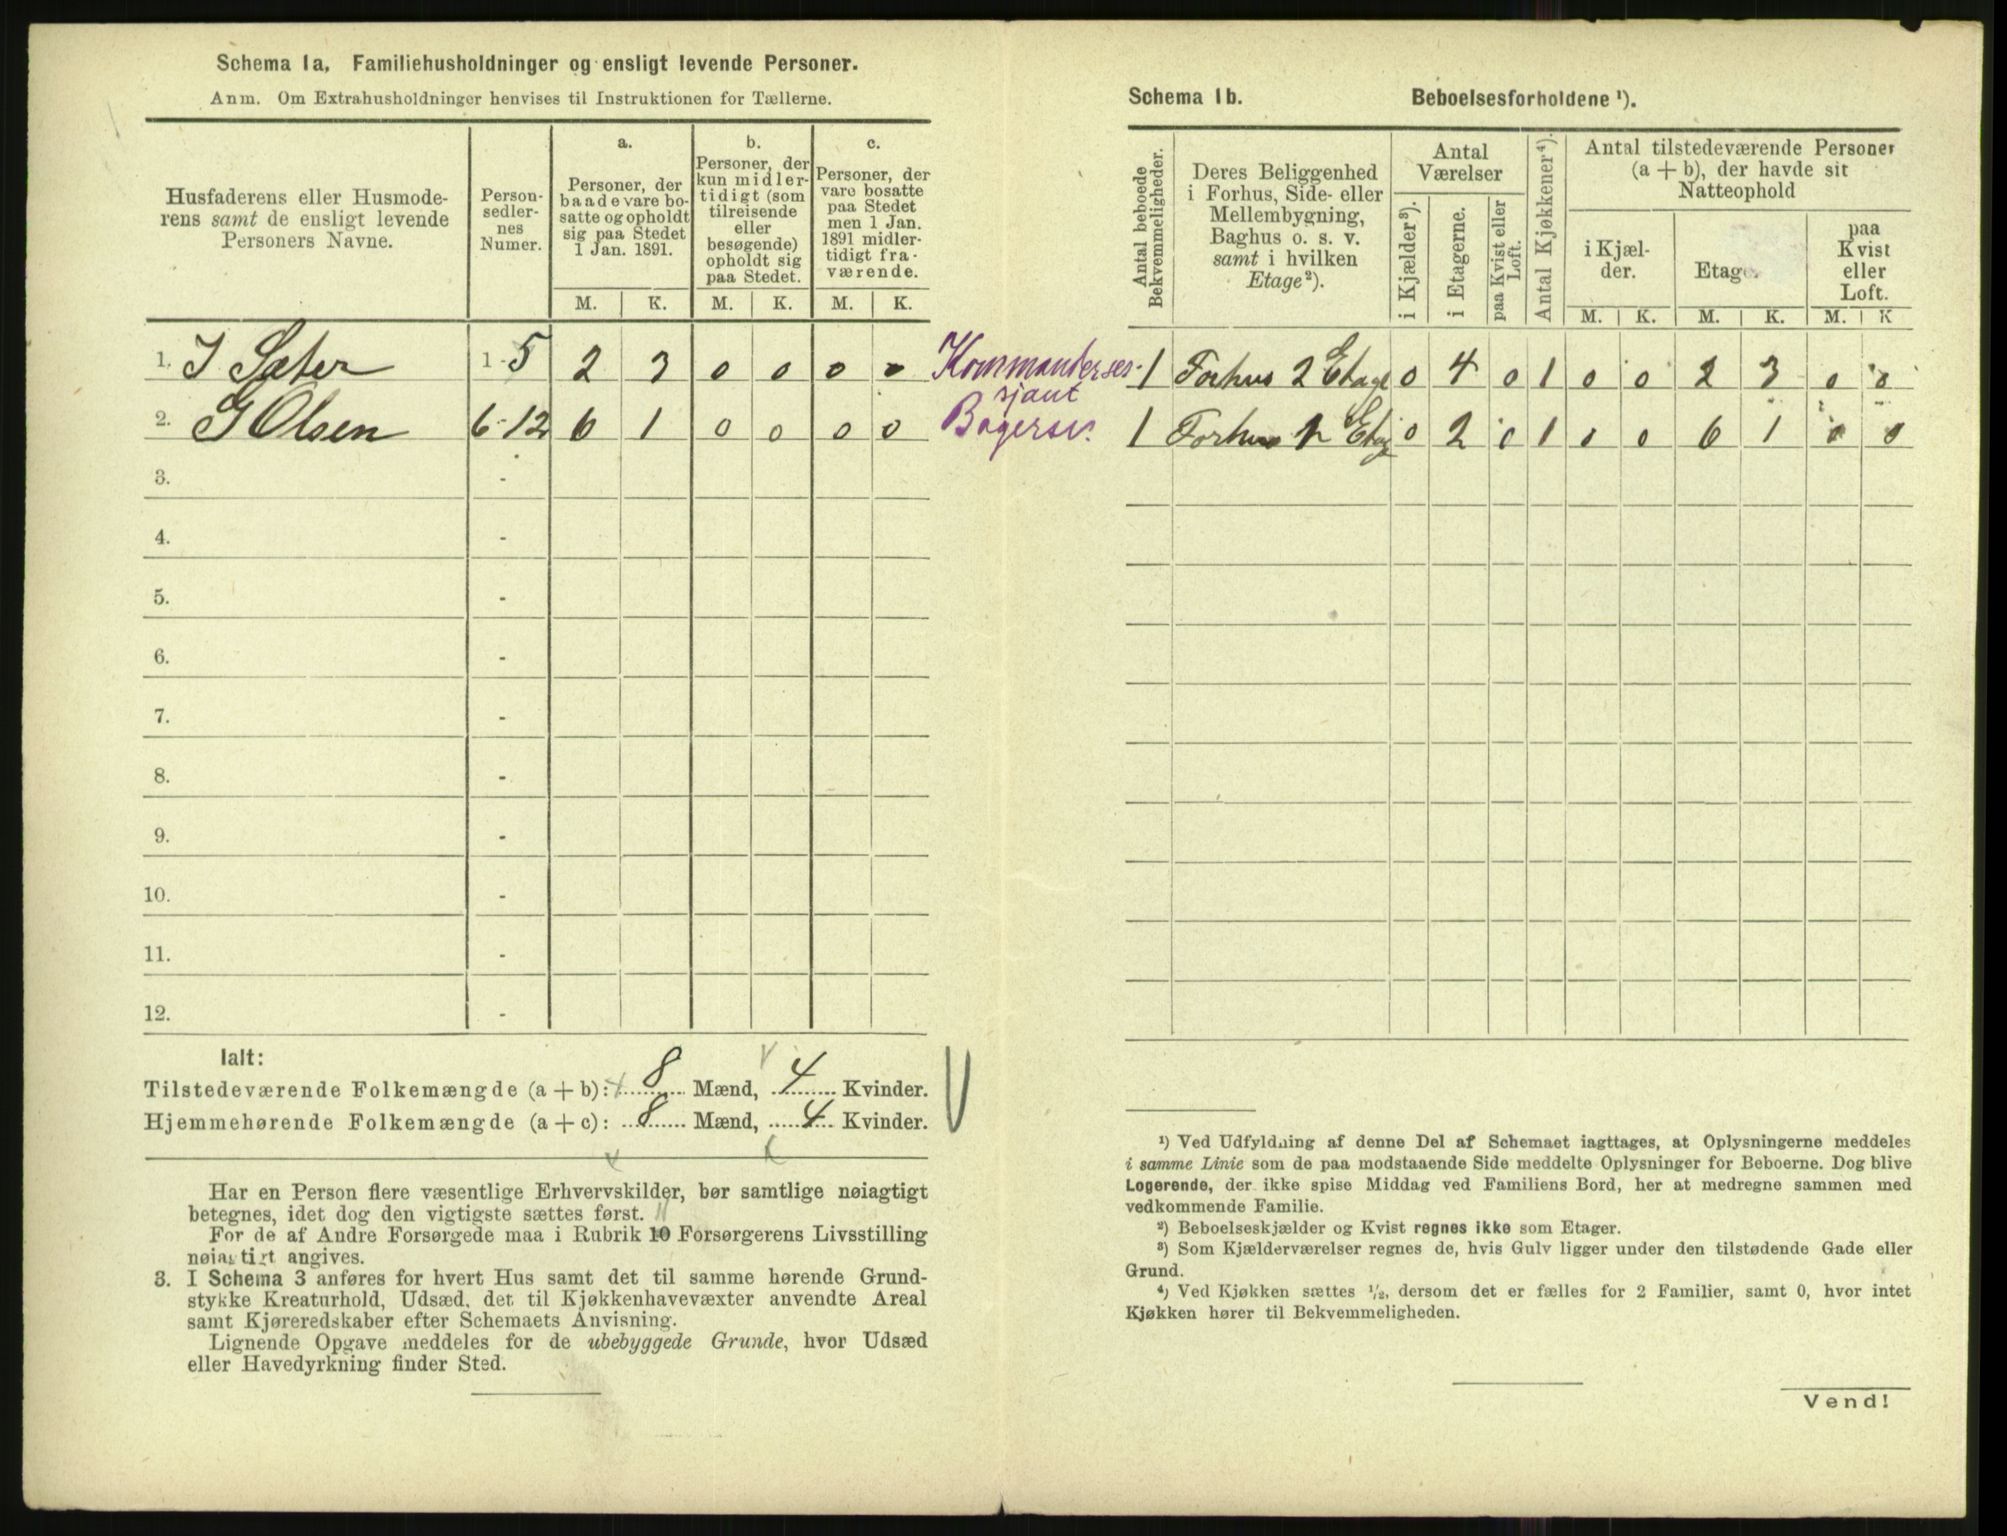 Schema 1a. Familiehusholdninger og ensligt levende Personer.
Anm. Om Extrahusholdninger henvises til Instruktionen for Tællerne.
Husfaderens eller Husmoderens samt de ensligt levende Personers Navne.
Personsedlernes Numer.
a.
Personer, der baade vare bosatte og opholdt sig paa Stedet 1 Jan. 1891.
b.
Personer, der kun midlertidigt (som tilreisende eller besøgende) opholdt sig paa Stedet.
c.
Personer, der vare bosatte paa Stedet men 1 Jan. 1891 midlertidigt fraværende.
M. K. M. K. M. K.
1. J Sæter 1-5 2 3 0 0 0 0
2. G Olsen 6-12 6 1 0 0 0 0
3. -
4. -
5. -
6. -
7. -
8. -
9. -
10. -
11. -
12. -
Ialt:
Tilstedeværende Folkemængde (a + b): 8 Mænd, 4 Kvinder.
Hjemmehørende Folkemængde (a + c): 8 Mænd, 4 Kvinder.
Har en Person flere væsentlige Erhvervskilder, bør samtlige nøiagtigt
betegnes, idet dog den vigtigste sættes først.
For de af Andre Forsørgede maa i Rubrik 10 Forsørgerens Livsstilling
nøiagtigt angives.
3. I Schema 3 anføres for hvert Hus samt det til samme hørende Grund-
stykke Kreaturhold, Udsæd, det til Kjøkkenhavevæxter anvendte Areal
samt Kjøreredskaber efter Schemaets Anvisning.
Lignende Opgave meddeles for de ubebyggede Grunde, hvor Udsæd
eller Havedyrkning finder Sted.
Kommandersersjant
Bagersv.
Schema 1b. Beboelsesforholdene ¹).
Antal beboede Bekvemmeligheder.
Deres Beliggenhed i Forhus, Side- eller Mellembygning, Baghus o. s. v. samt i hvilken Etage²).
Antal Værelser
i Kjælder³).
i Etagerne.
paa Kvist eller Loft.
Antal Kjøkkener⁴).
Antal tilstedeværende Personer (a + b), der havde sit Natteophold
i Kjælder.
Etage.
paa Kvist eller Loft.
M. K. M. K. M. K
1 Forhus 2 Etage 0 4 0 1 0 0 2 3 0 0
1 Forhus 1 Etag 0 2 0 1 0 0 6 1 0 0
¹) Ved Udfyldning af denne Del af Schemaet iagttages, at Oplysningerne meddeles
i samme Linie som de paa modstaaende Side meddelte Oplysninger for Beboerne. Dog blive
Logerende, der ikke spise Middag ved Familiens Bord, her at medregne sammen med
vedkommende Familie.
²) Beboelseskjælder og Kvist regnes ikke som Etager.
³) Som Kjælderværelser regnes de, hvis Gulv ligger under den tilstødende Gade eller
Grund.
⁴) Ved Kjøkken sættes ½, dersom det er fælles for 2 Familier, samt 0, hvor intet
Kjøkken hører til Bekvemmeligheden.
Vend!